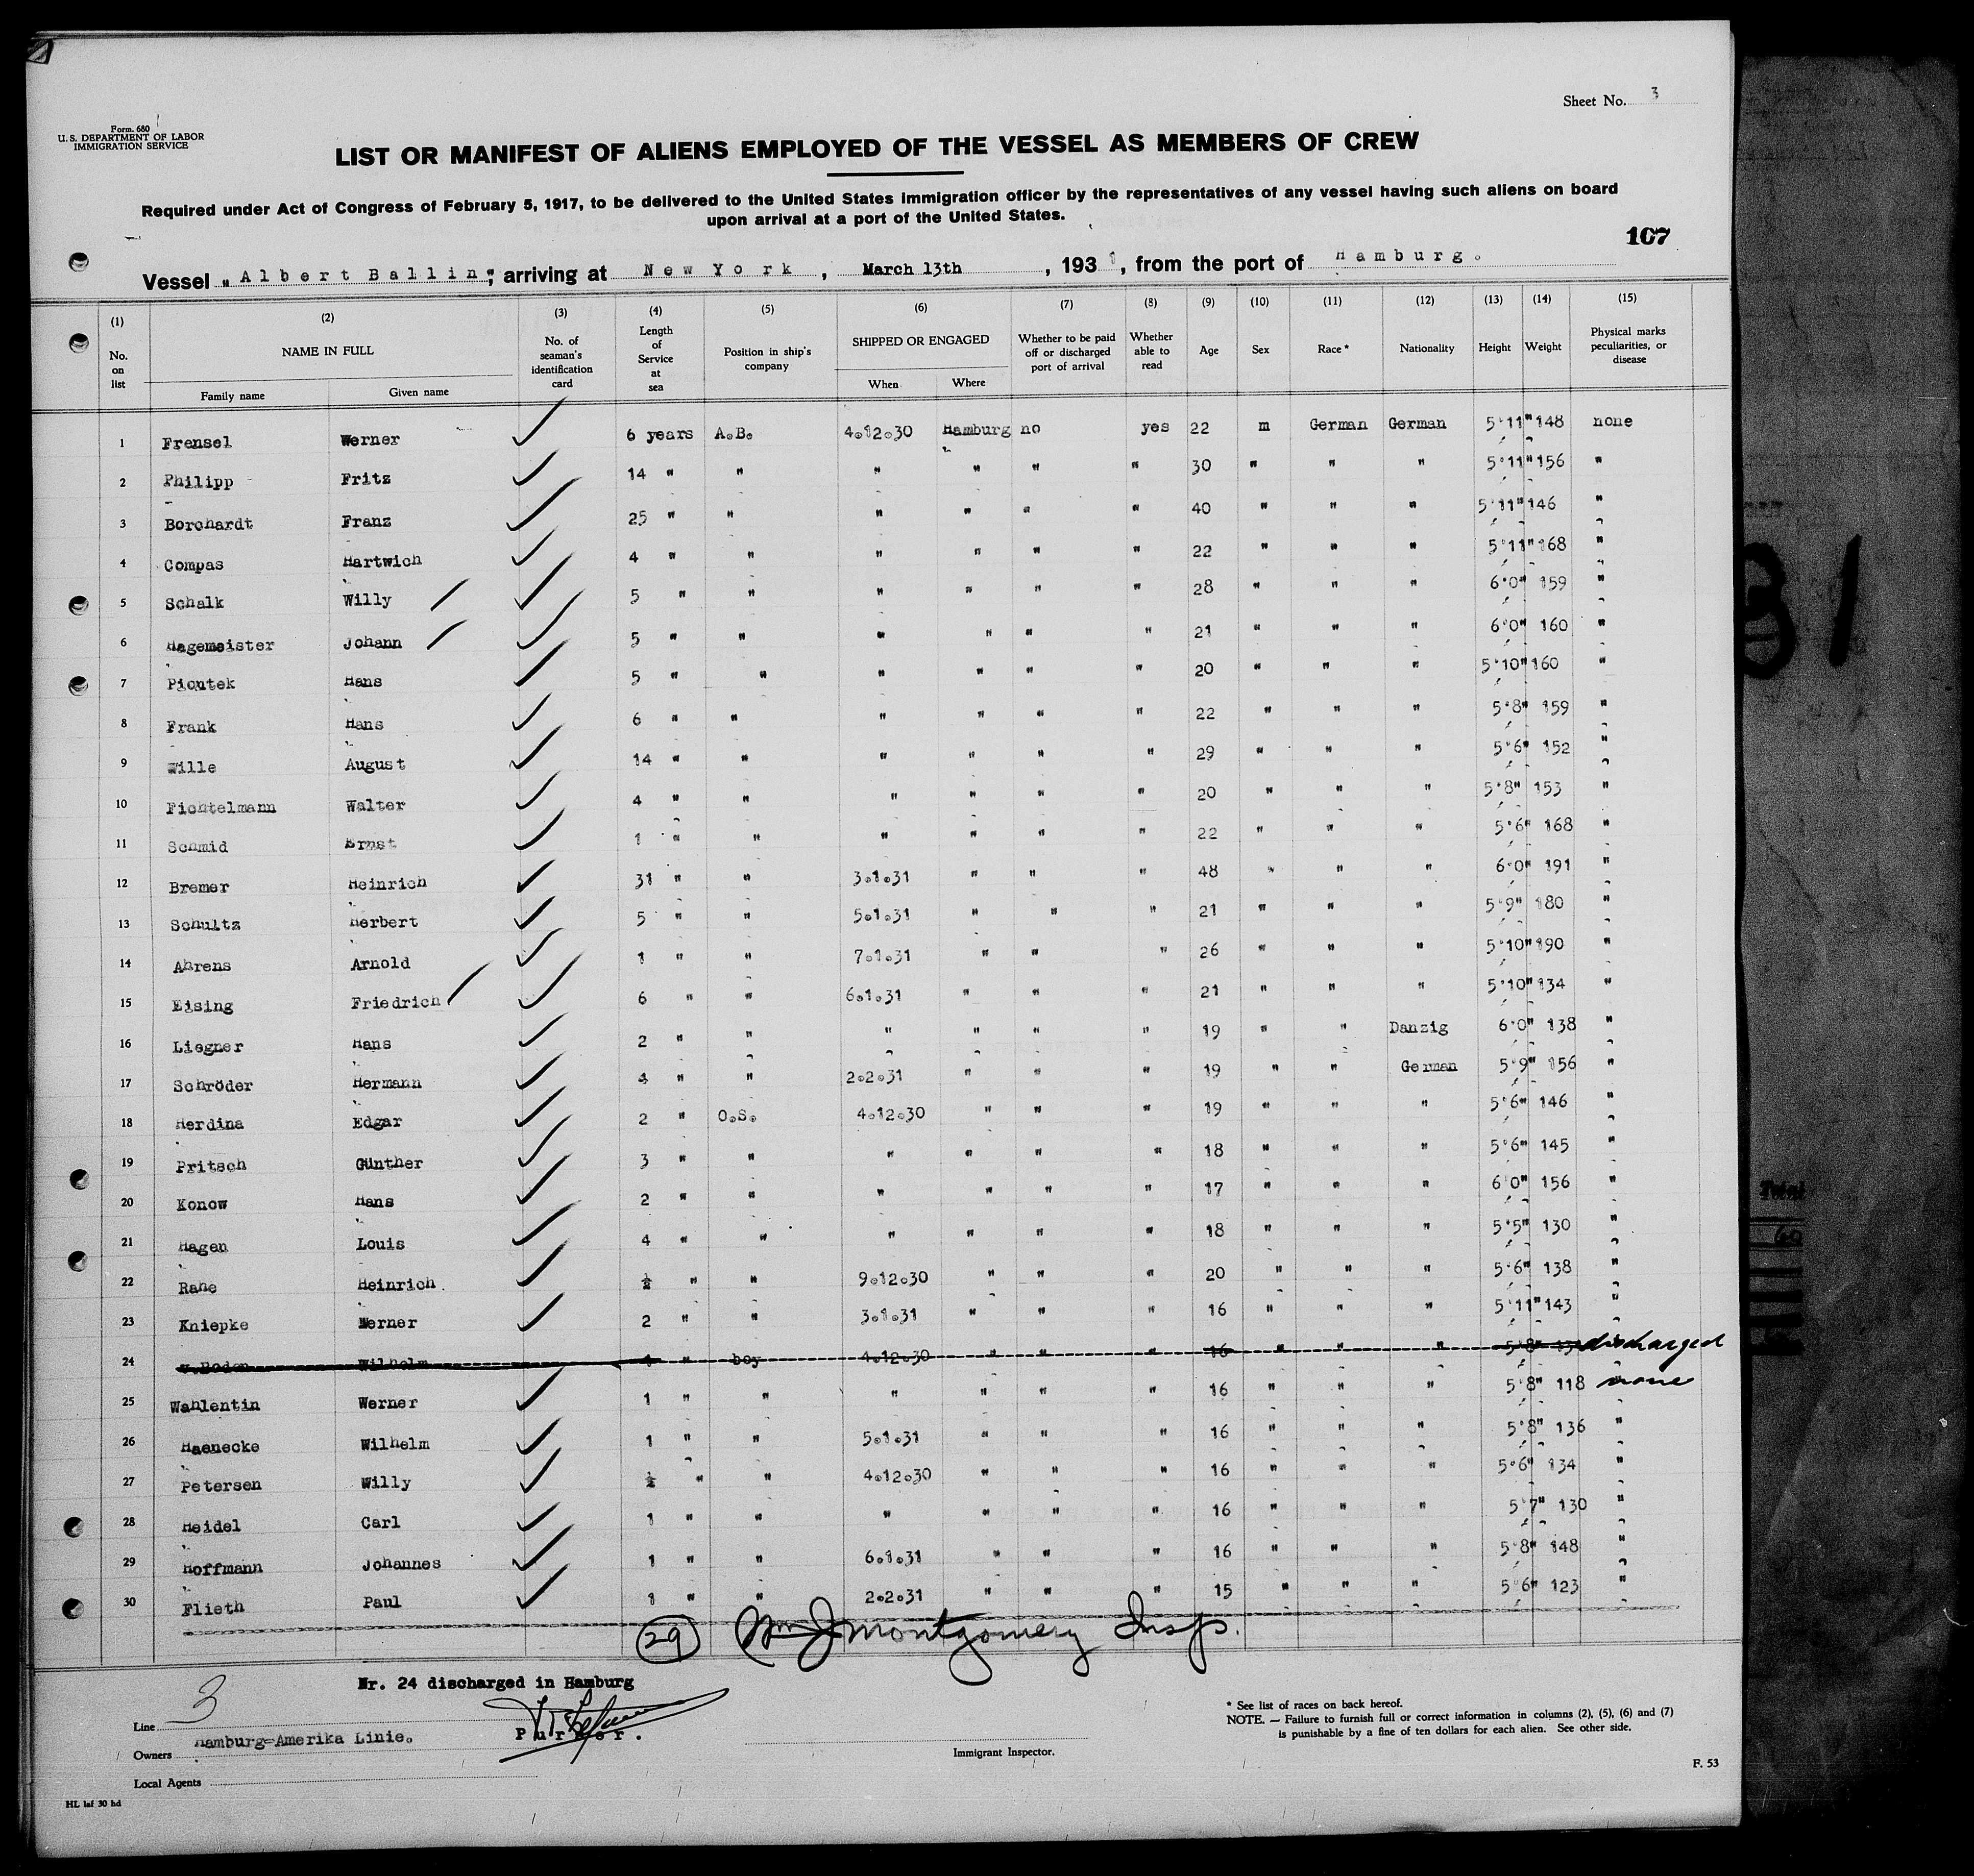 Sheet No. 3
Form. 680
U. S. DEPARTMENT OF LABOR
IMMIGRATION SERVICE
LIST OR MANIFEST OF ALIENS EMPLOYED OF THE VESSEL AS MEMBERS OF CREW
Required under Act of Congress of February 5, 1917, to be delivered to the United States immigration officer by the representatives of any vessel having such aliens on board
upon arrival at a port of the United States.
107
Vessel "Albert Ballin", arriving at New York, March 13th, 1931, from the port of Hamburg.
(1) (2) (3) (4) (5) (6) (7) (8) (9) (10) (11) (12) (13) (14) (15)
No. on list NAME IN FULL Family name Given name No. of seaman's identification card Length of Service at sea Position in ship's company SHIPPED OR ENGAGED When Where Whether to be paid off or discharged port of arrival Whether able to read Age Sex Race* Nationality Height Weight Physical marks peculiarities, or disease
1 Frensel Werner 6 years A.B. 4.12.30 Hamburg no yes 22 m German German 5'11" 148 none
2 Philipp Fritz 14 " " " " " " 30 " " " 5'11" 156 "
3 Borchardt Franz 25 " " " " " " 40 " " " 5'11" 146 "
4 Compas Hartwich 4 " " " " " " 22 " " " 5'11" 168 "
5 Schalk Willy 5 " " " " " " 28 " " " 6'0" 159 "
6 Hagemeister Johann 5 " " " " " " 21 " " " 6'0" 160 "
7 Piontek Hans 5 " " " " " " 20 " " " 5'10" 160 "
8 Frank Hans 6 " " " " " " 22 " " " 5'8" 159 "
9 Wille August 14 " " " " " " 29 " " " 5'6" 152 "
10 Fichtelmann Walter 4 " " " " " " 20 " " " 5'8" 153 "
11 Schmid Ernst 1 " " " " " " 22 " " " 5'6" 168 "
12 Bremer Heinrich 31 " " 3.1.31 " " " 48 " " " 6'0" 191 "
13 Schultz Herbert 5 " " 5.1.31 " " " 21 " " " 5'9" 180 "
14 Ahrens Arnold 1 " " 7.1.31 " " " 26 " " " 5'10" 190 "
15 Eising Friedrich 6 " " 6.1.31 " " " 21 " " " 5'10" 134 "
16 Liegner Hans 2 " " " " " " 19 " " Danzig 6'0" 138 "
17 Schröder Hermann 4 " " 2.2.31 " " " 19 " " German 5'9" 156 "
18 Herdina Edgar 2 " O.S. 4.12.30 " " " 19 " " " 5'6" 146 "
19 Pritsch Günther 3 " " " " " " 18 " " " 5'6" 145 "
20 Konow Hans 2 " " " " " " 17 " " " 6'0" 156 "
21 Hagen Louis 4 " " " " " " 18 " " " 5'5" 130 "
22 Rahe Heinrich ½ " " 9.12.30 " " " 20 " " " 5'6" 138 "
23 Kniepke Werner 2 " " 3.1.31 " " " 16 " " " 5'11" 143 "
24 v.Boden Wilhelm 1 " boy 4.12.30 " " " 16 " " " 5'8" discharged
25 Wahlentin Werner 1 " " " " " " 16 " " " 5'8" 118 none
26 Haenecke Wilhelm 1 " " 5.1.31 " " " 16 " " " 5'8" 136 "
27 Petersen Willy ½ " " 4.12.30 " " " 16 " " " 5'6" 134 "
28 Heidel Carl 1 " " " " " " 16 " " " 5'7" 130 "
29 Hoffmann Johannes 1 " " 6.1.31 " " " 16 " " " 5'8" 148 "
30 Flieth Paul 1 " " 2.2.31 " " " 15 " " " 5'6" 123 "
29 Wm J Montgomery Insp.
Nr. 24 discharged in Hamburg
Line 3
Purser.
Owners Hamburg-Amerika Linie.
Local Agents
Immigrant Inspector.
* See list of races on back hereof.
NOTE. — Failure to furnish full or correct information in columns (2), (5), (6) and (7)
is punishable by a fine of ten dollars for each alien. See other side.
F. 53
HL laf 30 hd
31